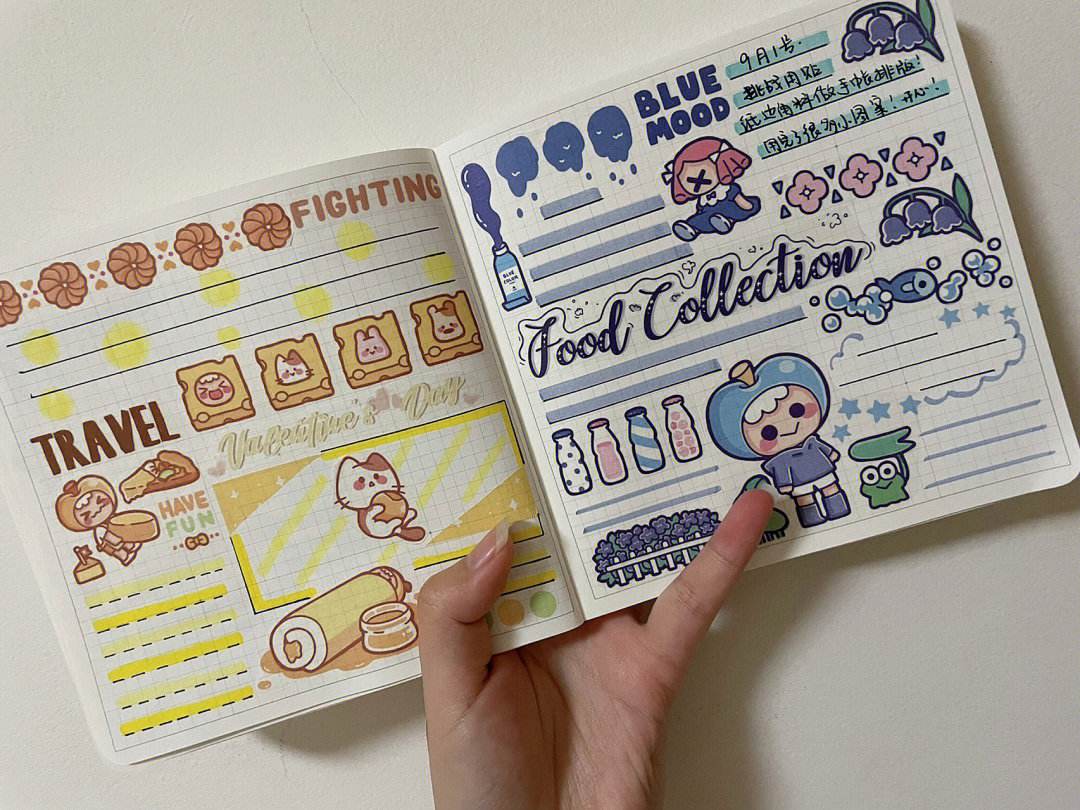 FIGHTING
TRAVEL
Valentine's Day
HAVE
FUN
BLUE
MOOD
9月1号.
挑战用贴
纸边角料做手帐排版!
用完了很多小图案!开心!
BLUE
COLOR
Food Collection